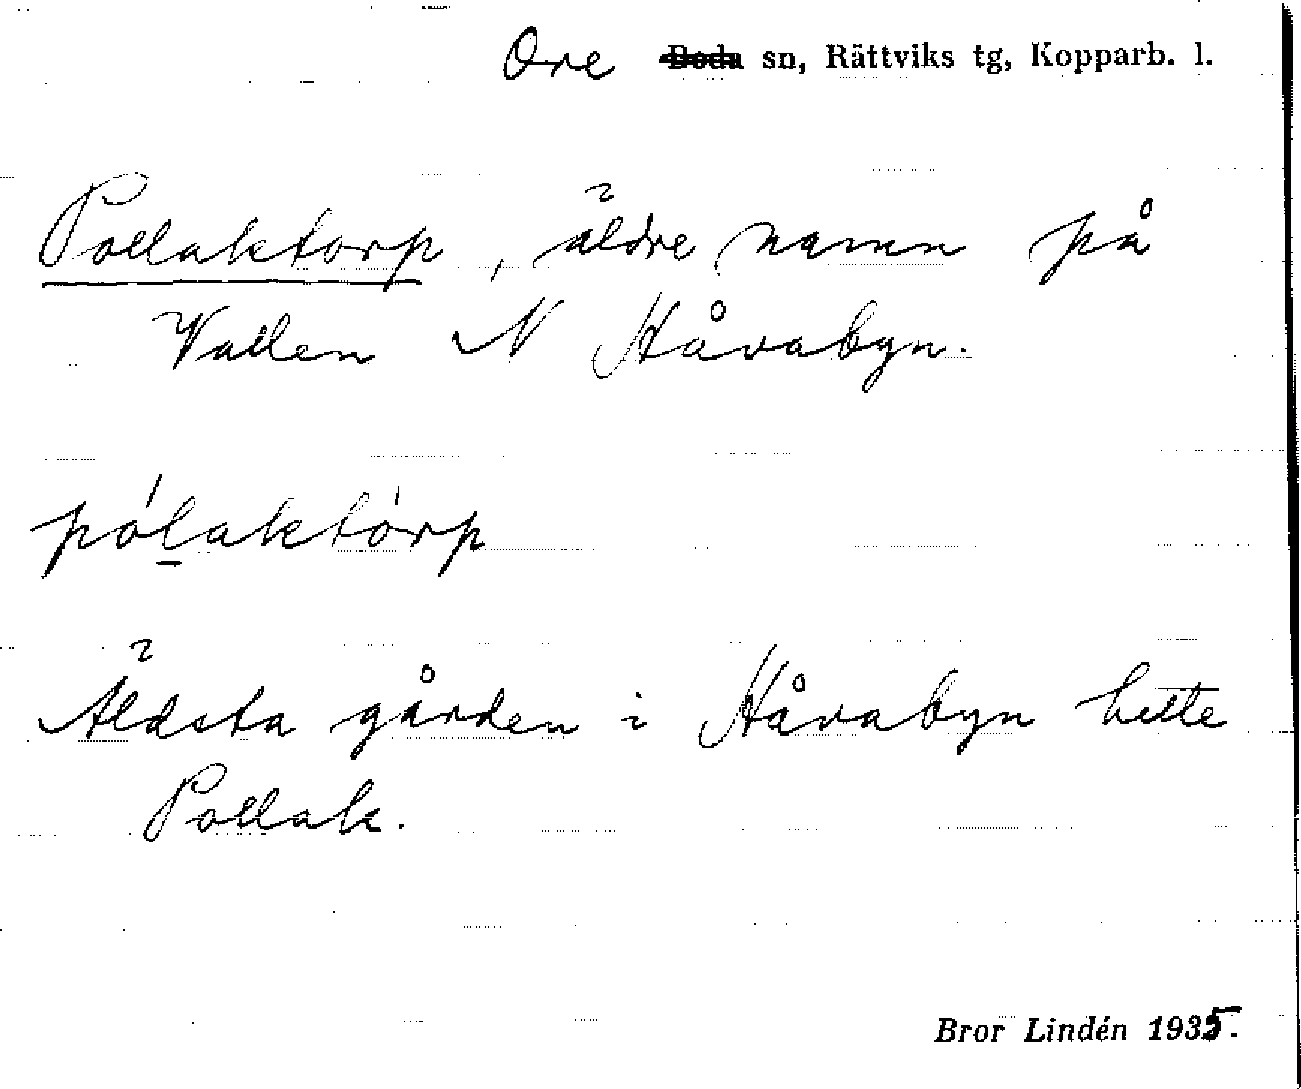 Ore Boda sn, Rättviks tg, Kopparb. l.
Pollaktorp, äldre namn på
Vallen N Håvabyn.
pólaktórp
Äldsta gården i Håvabyn hette
Pollak.
Bror Lindén 1935.